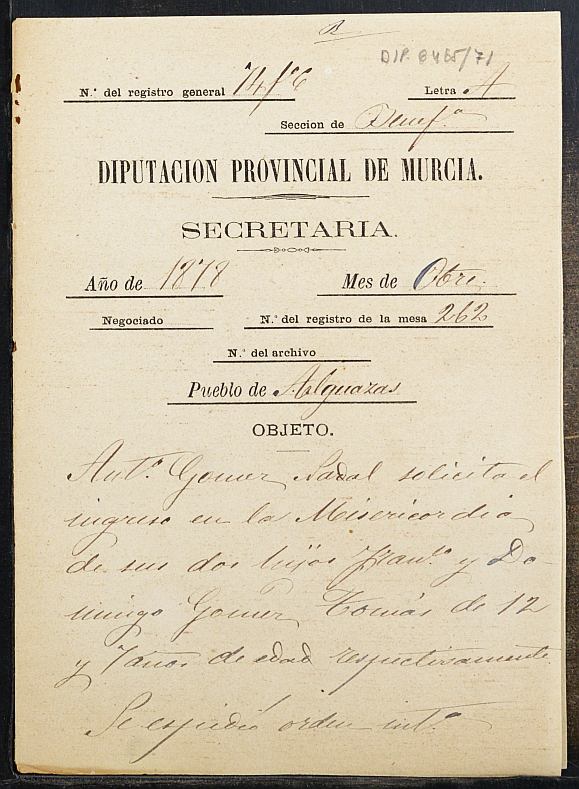 DIP. 6465/71
N.º del registro general
Letra A
Seccion de Benef.ª
DIPUTACION PROVINCIAL DE MURCIA.
SECRETARIA.
Año de 1878
Mes de Obre.
Negociado
N.º del registro de la mesa 262
N.º del archivo
Pueblo de Alguazas
OBJETO.
Ant.º Gomez Nadal solicita el
ingreso en la Misericordia
de sus dos hijos Fran.co y Do-
mingo Gomez Tomás de 12
y 7 años de edad respectivamente.
Se espidió orden int.ª